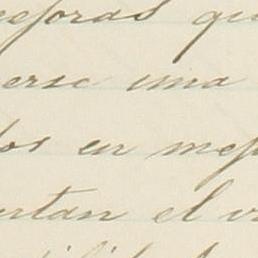 esforas qu
erse una
los en mej
ertan el v